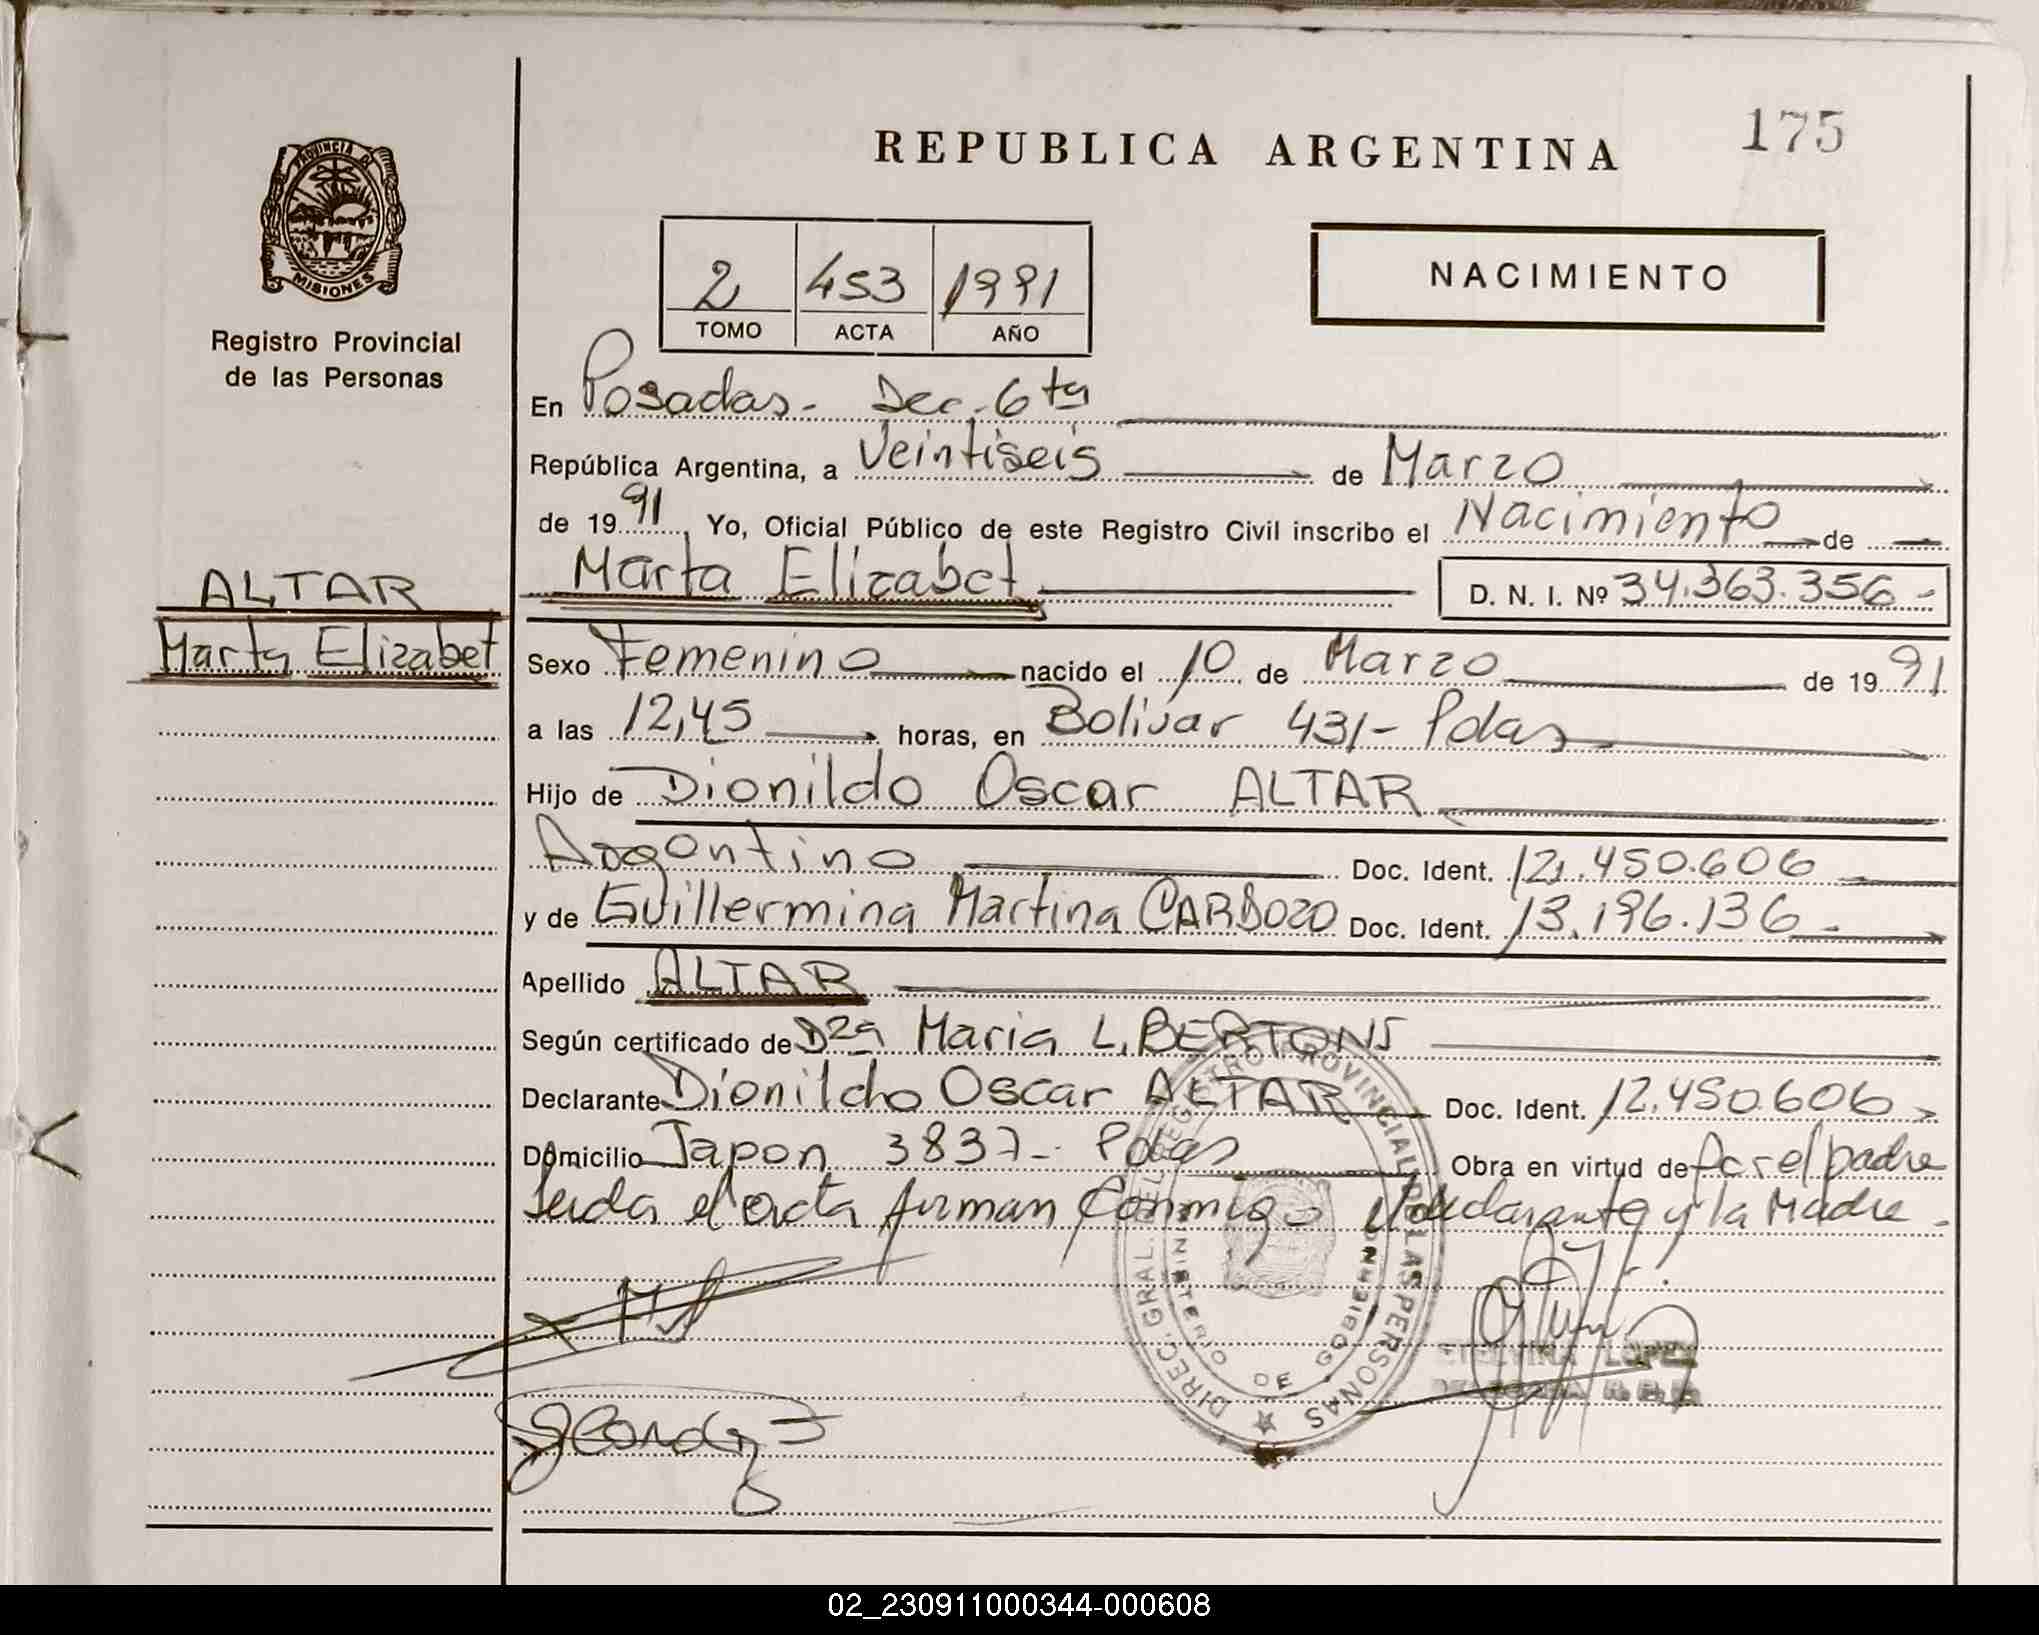 175
REPUBLICA ARGENTINA
PROVINCIA DE
MISIONES
Registro Provincial
de las Personas
2 453 1991
TOMO ACTA AÑO
NACIMIENTO
En Posadas - Dec. 6ta
República Argentina, a Veintiseis de Marzo
de 1991 Yo, Oficial Público de este Registro Civil inscribo el Nacimiento de
Marta Elizabet D. N. I. Nº 34.363.356 -
ALTAR
Marta Elizabet
Sexo Femenino nacido el 10 de Marzo de 1991
a las 12,45 horas, en Bolivar 431 - Pdas
Hijo de Dionildo Oscar ALTAR
Argentino Doc. Ident. 12.450.606
y de Guillermina Martina CARDOZO Doc. Ident. 13.196.136 -
Apellido ALTAR
Según certificado de Dra Maria L. BERTONI
Declarante Dionildo Oscar ALTAR Doc. Ident. 12.450.606
Domicilio Japon 3837 - Pdas Obra en virtud de ser el padre
Leida el acta firman conmigo el declarante y la Madre -
DIREC. GRAL. DEL REGISTRO PROVINCIAL DE LAS PERSONAS
MINISTERIO DE GOBIERNO
LOPEZ
02_230911000344-000608